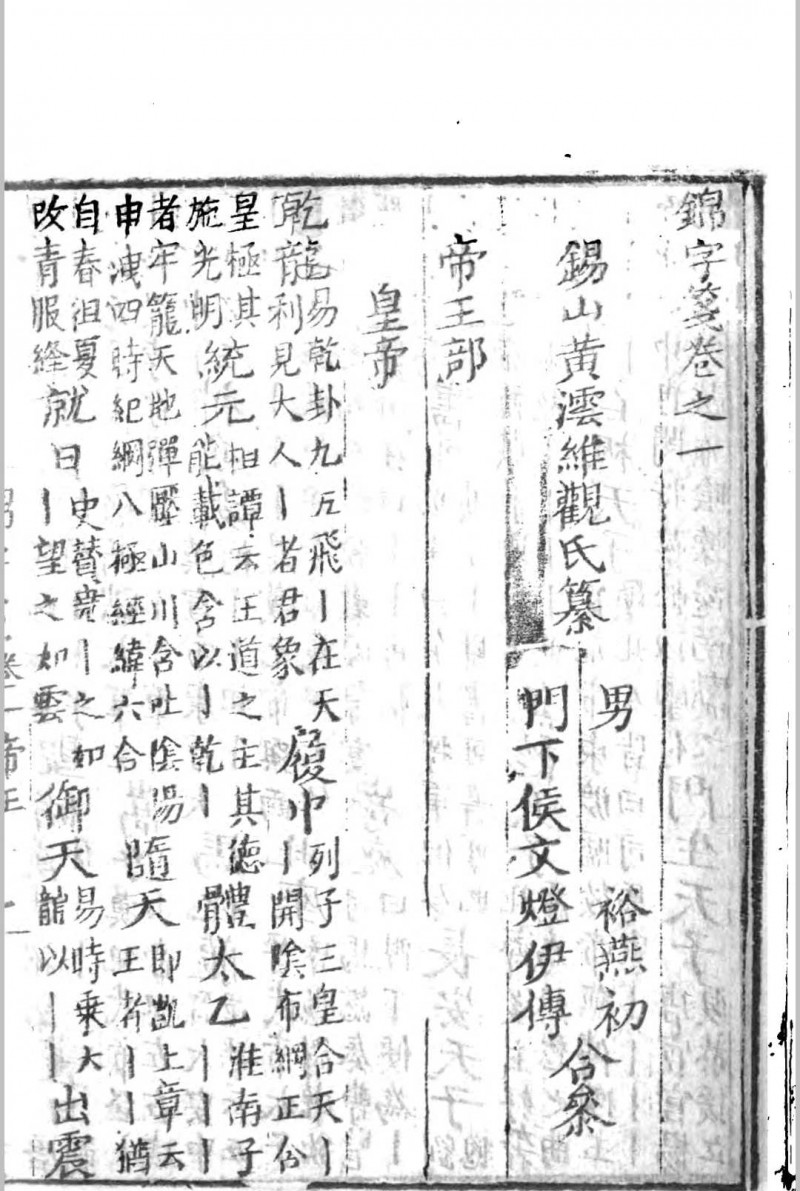 錦字箋卷之一
錫山黃澐維觀氏纂 男 裕燕初 門下侯文燈伊傳 合參
帝王部
皇帝
乾龍 易乾卦九五飛丨在天龍利見大人丨者君象 履中 列子三皇合天丨丨開陰布綱正分
皇極其施光明 統元 桓譚云王道之主其德能載色含以丨乾丨 體太乙 淮南子丨丨丨
者牢籠天地彈壓山川含吐陰陽申洩四時紀綱八極經緯六合 隨天 即凱上章云王者丨丨猶
自春徂夏改青服絳 就日 史贊堯丨之如丨望之如雲 御天 易時乘六龍以丨丨丨 出震